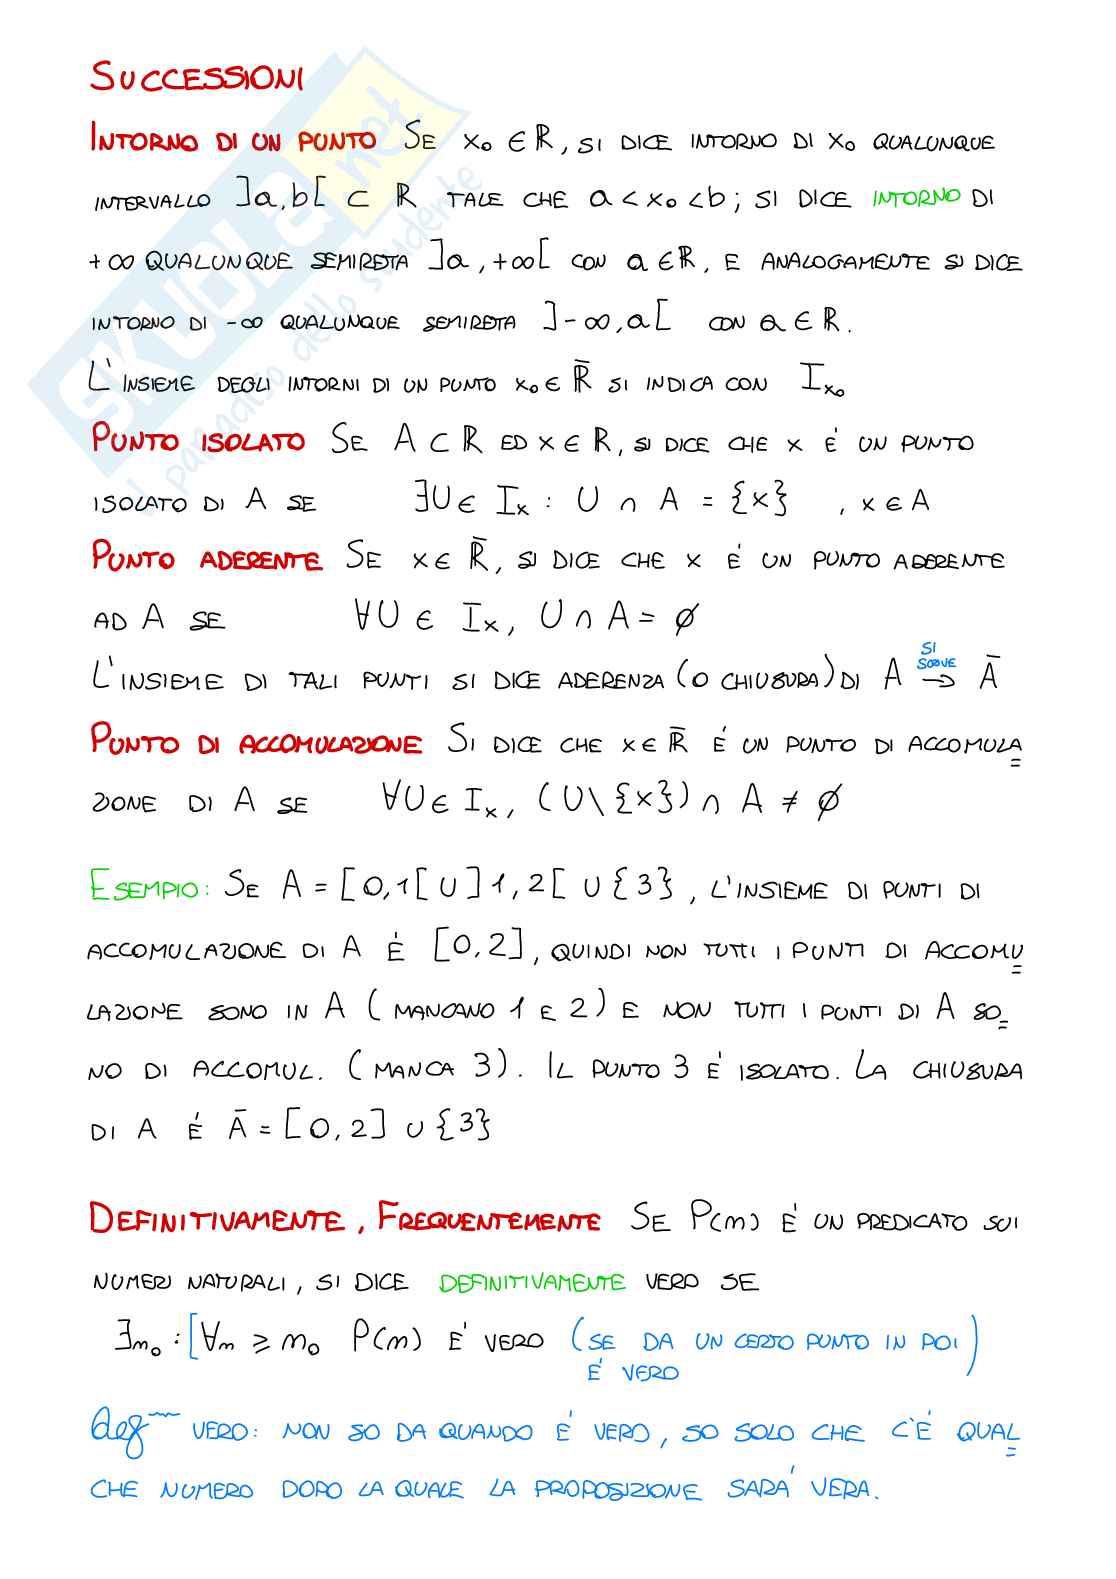 SUCCESSIONI
INTORNO DI UN PUNTO SE x₀ ∈ ℝ, SI DICE INTORNO DI x₀ QUALUNQUE
INTERVALLO ]a,b[ ⊂ ℝ TALE CHE a < x₀ < b; SI DICE INTORNO DI
+∞ QUALUNQUE SEMIRETA ]a,+∞[ CON a ∈ ℝ, E ANALOGAMENTE SI DICE
INTORNO DI -∞ QUALUNQUE SEMIRETA ]-∞,a[ CON a ∈ ℝ.
L'INSIEME DEGLI INTORNI DI UN PUNTO x₀ ∈ ℝ̄ SI INDICA CON Iₓ₀
PUNTO ISOLATO SE A ⊂ ℝ ED x ∈ ℝ, SI DICE CHE x E' UN PUNTO
ISOLATO DI A SE ∃U ∈ Iₓ : U ∩ A = {x} , x ∈ A
PUNTO ADERENTE SE x ∈ ℝ̄, SI DICE CHE x E' UN PUNTO ADERENTE
AD A SE ∀U ∈ Iₓ, U ∩ A = ∅
L'INSIEME DI TALI PUNTI SI DICE ADERENZA (O CHIUSURA) DI A SI SCRIVE → Ā
PUNTO DI ACCOMULAZIONE SI DICE CHE x ∈ ℝ̄ E' UN PUNTO DI ACCOMULA=
ZIONE DI A SE ∀U ∈ Iₓ, (U\{x}) ∩ A ≠ ∅
ESEMPIO: SE A = [0,1[ ∪ ]1,2[ ∪ {3}, L'INSIEME DI PUNTI DI
ACCOMULAZIONE DI A E' [0,2], QUINDI NON TUTTI I PUNTI DI ACCOMU=
LAZIONE SONO IN A (MANCANO 1 E 2) E NON TUTTI I PUNTI DI A SO=
NO DI ACCOMUL. (MANCA 3). IL PUNTO 3 E' ISOLATO. LA CHIUSURA
DI A E' Ā = [0,2] ∪ {3}
DEFINITIVAMENTE, FREQUENTEMENTE SE P(m) E' UN PREDICATO SUI
NUMERI NATURALI, SI DICE DEFINITIVAMENTE VERO SE
∃m₀ : [∀m ⩾ m₀ P(m) E' VERO (SE DA UN CERTO PUNTO IN POI
E' VERO)
def~ VERO: NON SO DA QUANDO E' VERO, SO SOLO CHE C'E' QUAL=
CHE NUMERO DOPO LA QUALE LA PROPOSIZIONE SARA' VERA.
SKUOLA.net
il paradiso dello studente